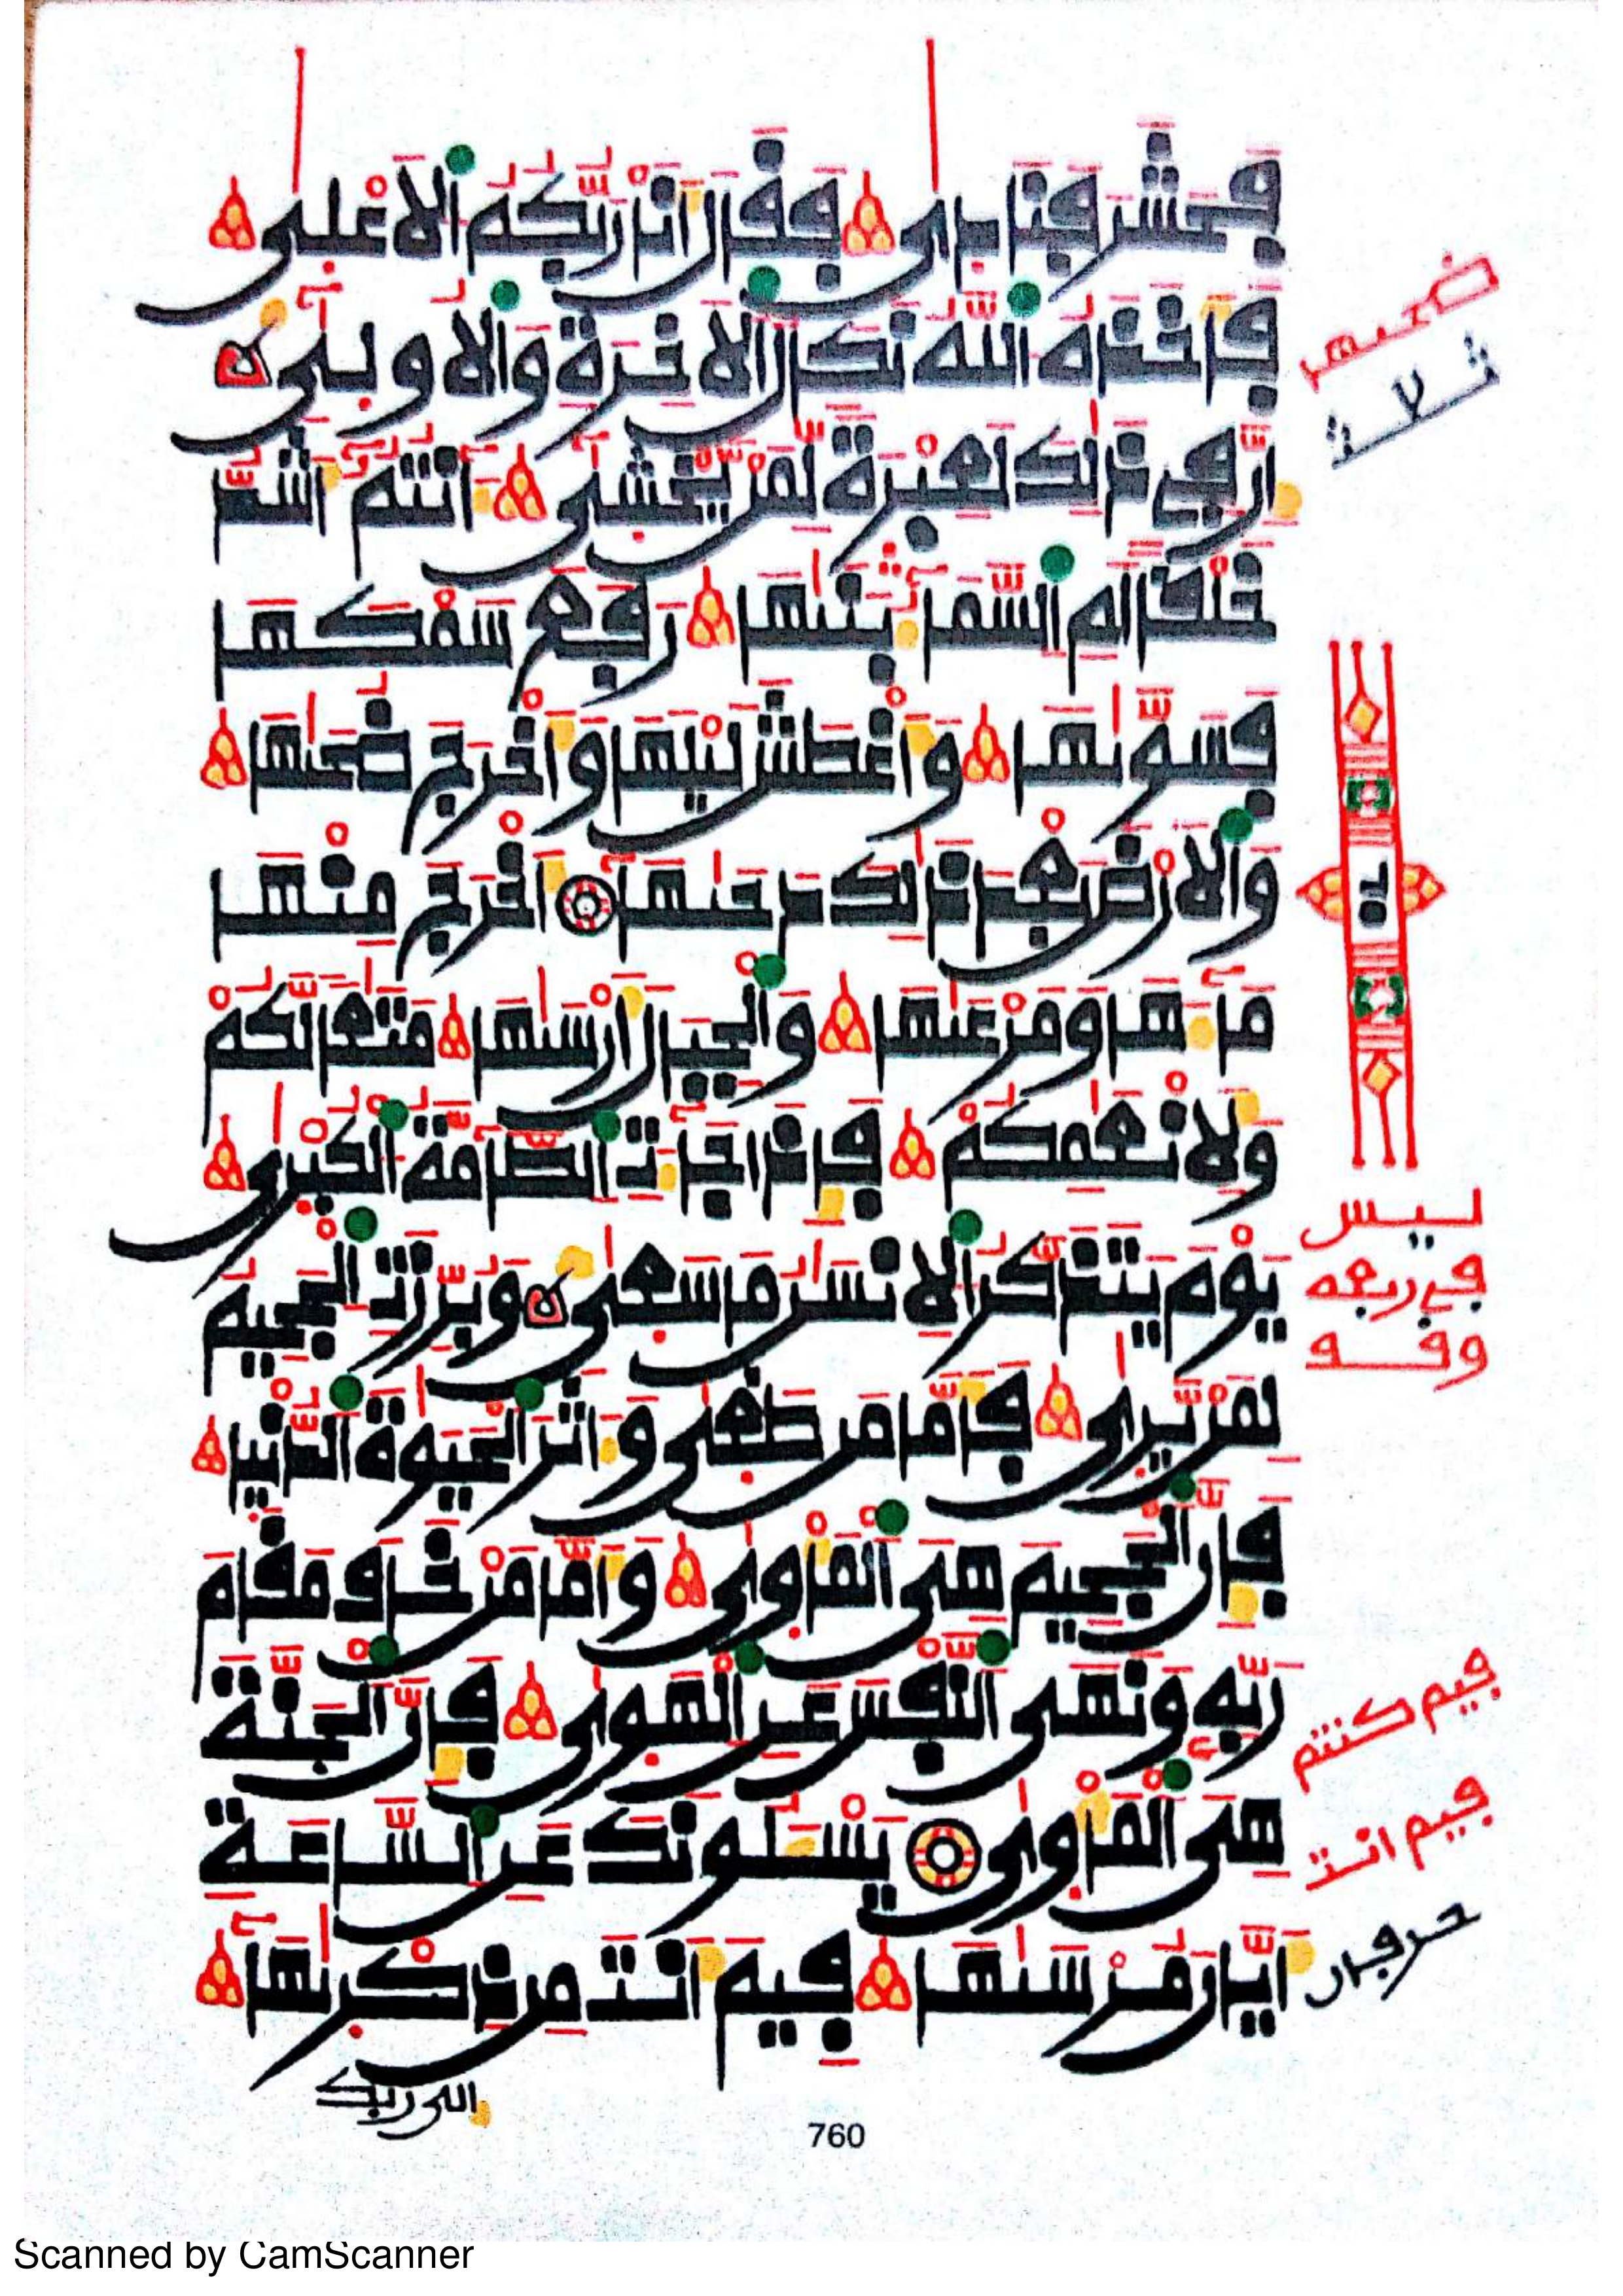 فحشر فنادى فقال انا ربكم الاعلى
فاخذه الله نكال الاخرة والاولى
ان في ذالك لعبرة لمن يخشى انتم اشد
خلقا ام السماء بنىها رفع سمكها
فسوىها واغطش ليلها واخرج ضحىها
والارض بعد ذالك دحىها اخرج منها
ماءها ومرعىها والجبال ارسىها متعا لكم
ولانعمكم فاذا جاءت الطامة الكبرى
يوم يتذكر الانسن ما سعى وبرزت الجحيم
لمن يرى فاما من طغى وءاثر الحيوة الدنيا
فان الجحيم هي الماوى واما من خاف مقام
ربه ونهى النفس عن الهوى فان الجنة
هي الماوى يسءلونك عن الساعة
ايان مرسىها فيم انت من ذكرىها
الى ربك
ثلاثة
ليس
في ربعه
وقف
فيم كنتم
فيم انت
حرفان
760
Scanned by CamScanner